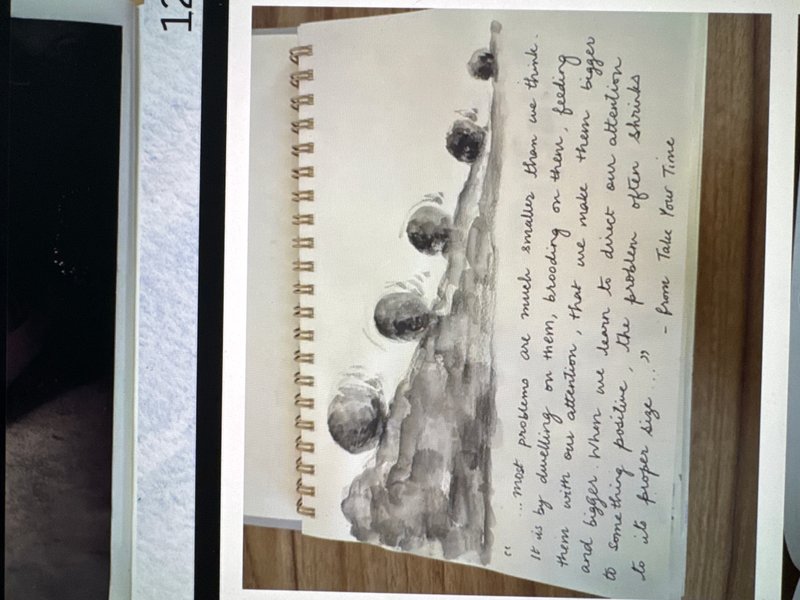 12
"...most problems are much smaller than we think.
It is by dwelling on them, brooding on them, feeding
them with our attention, that we make them bigger
and bigger. When we learn to direct our attention
to something positive, the problem often shrinks
to its proper size..."
- from Take Your Time